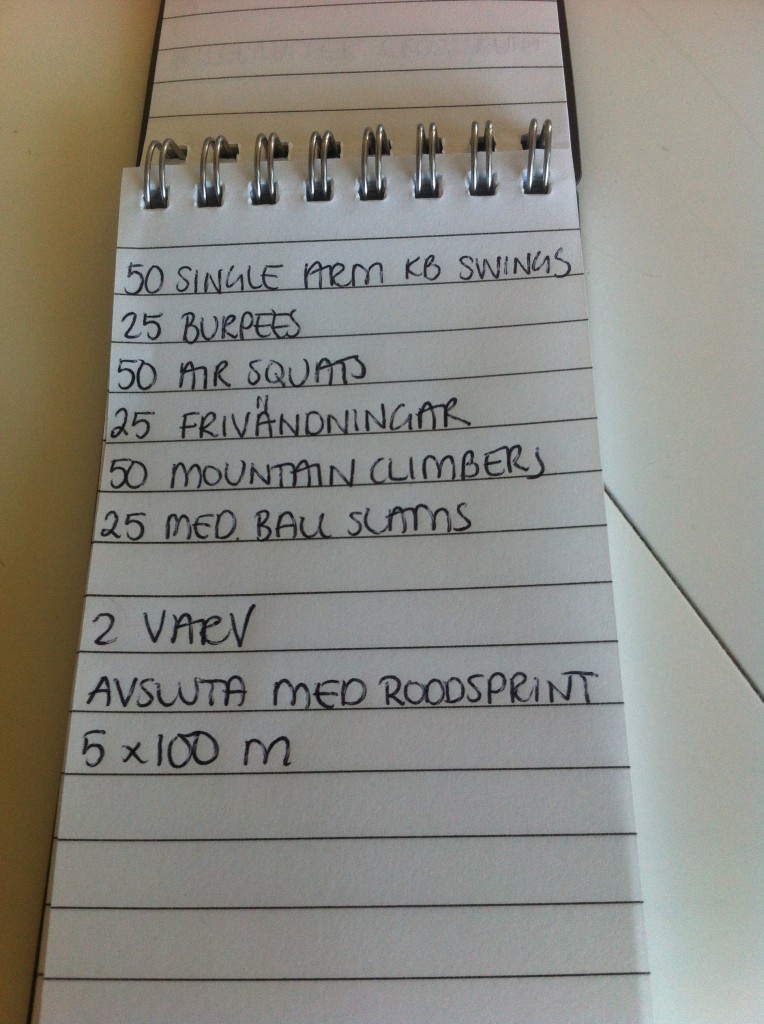 50 SINGLE ARM KB SWINGS
25 BURPEES
50 AIR SQUATS
25 FRIVÄNDNINGAR
50 MOUNTAIN CLIMBERS
25 MED. BALL SLAMS
2 VARV
AVSLUTA MED RODDSPRINT
5 x 100 m